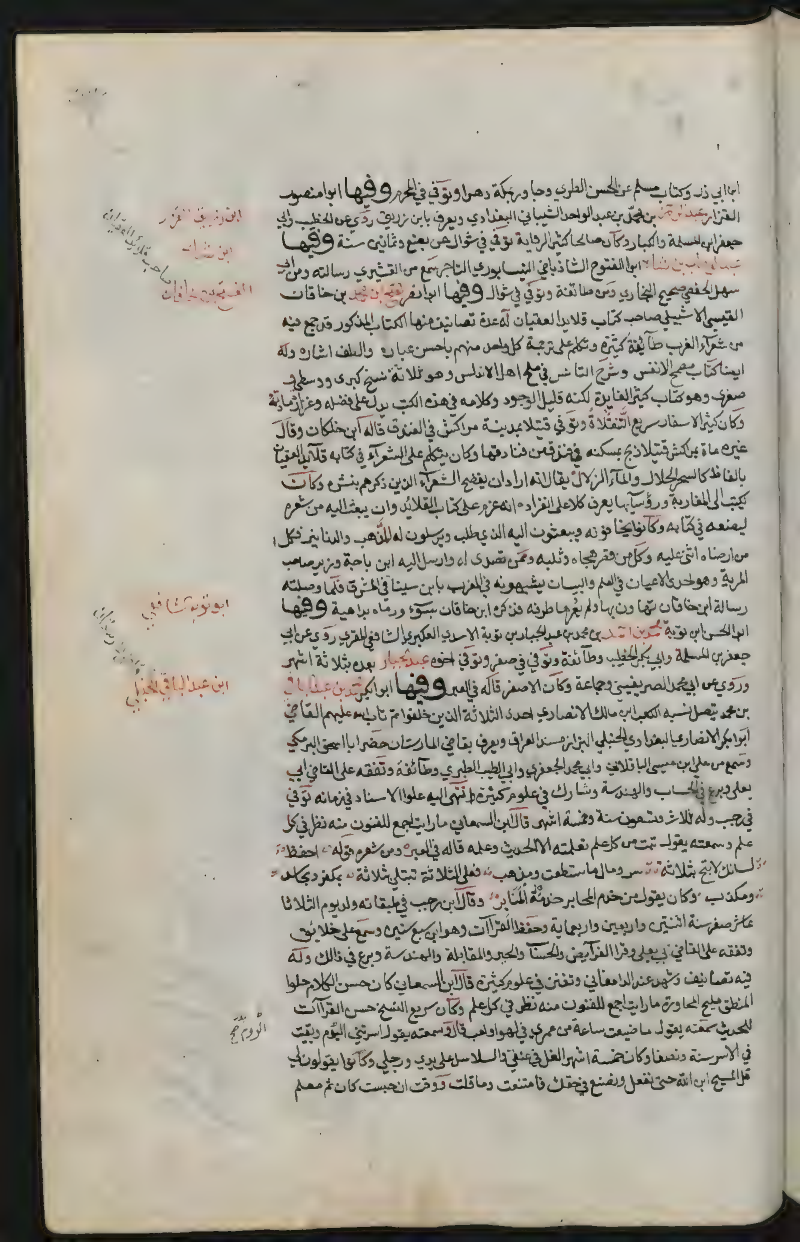 ابن ابي ذر وكتاب مسلم عن الحسن الطبري وجاور بمكة دهرا وتوفي في المحرم وفيها ابو منصور
القزاز عبد الرحمن بن محمد بن عبد الواحد الشيباني البغدادي ويعرف بابن زريق روى عن الخطيب وابي
جعفر ابن المسلمة والكبار وكان صالحا كثير الرواية توفي في شوال عن بضع وثمانين سنة وفيها
عبد الوهاب بن شاه ابو الفتوح الشاذياخي النيسابوري التاجر سمع من القشيري رسالته ومن ابي
سهل الحفصي صحيح البخاري ومن طائفة وتوفي في شوال وفيها ابو نصر الفتح بن محمد بن خاقان
القيسي الاشبيلي صاحب كتاب قلايد العقيان له عدة تصانيف منها الكتاب المذكور وقد جمع فيه
من شعراء الغرب طائفة كثيرة وتكلم على ترجمة كل واحد منهم باحسن عبارة والطف اشارة وله
ايضا كتاب مطمح الانفس ومسرح التانس في ملح اهل الاندلس وهو ثلاثة نسخ كبرى ووسطى و
صغرى وهو كتاب كثير الفايدة لكنه قليل الوجود وكلامه في هذه الكتب يدل على فضله وغزارة مادته
وكان كثير الاسفار سريع التنقلات وتوفي قتيلا بمدينة مراكش في الفندق قاله ابن خلكان وقال
غيره مات بمراكش قتيلا ذبح بمسكنه في فندق من فنادقها وكان يتكلم على الشعراء في كتابه قلائد العقيان
بالفاظ كالسحر الحلال والماء الزلال يقال انه اراد ان يفضح الشعراء الذين ذكرهم بنثره وكان
يكتب الى المغاربة ورؤسائها يعرف كلا على انفراده انه عزم على كتاب القلائد وان يبعث اليه من شعره
ليضعه في كتابه وكانوا يخافونه ويبعثون اليه الذي طلب ويرسلون له الذهب والدنانير فكل
من ارضاه اثنى عليه وكل من قصر هجاه وثلبه وممن تصدى له وارسل اليه ابن باجة وزير صاحب
المرية وهو احد الاعيان في العلم والبيان يشبهونه في المغرب بابن سينا في المشرق فلما وصلته
رسالة ابن خاقان تهاون بها ولم يعرها طرفه فذكر ابن خاقان بسوء ورماه بداهية وفيها
ابو الحسن ابن توبة محمد بن احمد بن محمد بن عبد الجبار بن توبة الاسدي العكبري الشافعي المقري روى عن ابي
جعفر بن المسلمة وابي بكر الخطيب وطائفة وتوفي في صفر وتوفي اخوه عبد الجبار بعده بثلاثة اشهر
وروى عن ابي محمد الصريفيني وجماعة وكان الاصغر قاله في العبر وفيها ابو بكر محمد بن عبد الباقي
بن محمد يتصل نسبه بكعب ابن مالك الانصاري احد الثلاثة الذين خلفوا ثم تاب الله عليهم القاضي
ابو بكر الانصاري البغدادي الحنبلي البزاز مسند العراق ويعرف بقاضي المارستان حضر ابا اسحق البرمكي
وسمع من علي ابن عيسى الباقلاني وابي محمد الجوهري وابي الطيب الطبري وطائفة وتفقه على القاضي ابي
يعلى وبرع في الحساب والهندسة وشارك في علوم كثيرة وانتهى اليه علو الاسناد في زمانه توفي
في رجب وله ثلاث وتسعون سنة وخمسة اشهر قال ابن السمعاني ما رايت اجمع للفنون منه نظر في كل
علم وسمعته يقول تبت من كل علم تعلمته الا الحديث وعلمه قاله في العبر ومن شعره قوله احفظ
لسانك لا تبح بثلاثة سر ومال ما استطعت ومذهب فعلى الثلاثة تبتلى بثلاثة بمكفر وبحاسد
ومكذب وكان يقول من خدم المحابر خدمته المنابر وقال ابن رجب في طبقاته ولد يوم الثلاثا
عاشر صفر سنة اثنتين واربعين واربعماية وحفظ القرآن وهو ابن سبع سنين وسمع على خلائق
وتفقه على القاضي ابي يعلى وقرا الفرايض والحساب والجبر والمقابلة والهندسة وبرع في ذلك وله
فيه تصانيف وشهد عند الدامغاني وتفنن في علوم كثيرة قال ابن السمعاني كان حسن الكلام حلو
المنطق مليح المحاورة ما رايت اجمع للفنون منه نظر في كل علم وكان سريع النسخ حسن القراءة
للحديث سمعته يقول ما ضيعت ساعة من عمري في لهو او لعب قال وسمعته يقول اسرتني الروم وبقيت
في الاسر سنة ونصفا وكان خمسة اشهر الغل في عنقي والسلاسل على يدي ورجلي وكانوا يقولون لي
قل المسيح ابن الله حتى نفعل ونصنع في حقك فامتنعت وما قلت ووقت ان حبست كان ثم معلم
ابن زريق القزاز
ابن شاه
الفتح بن خاقان
صاحب قلائد العقيان
ابو توبة شافعي
ابن عبد الباقي الحنبلي
الروم صح